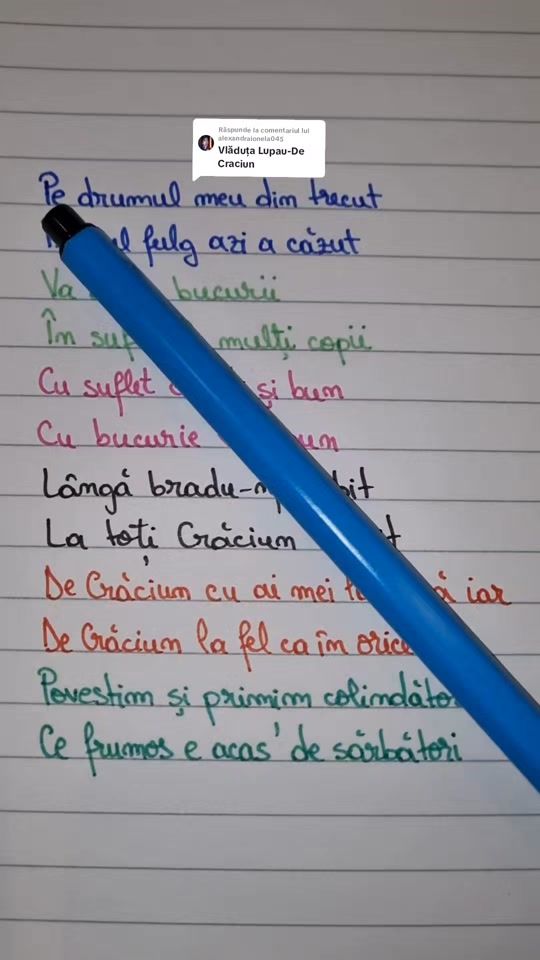 Răspunde la comentariul lui
alexandraionela045
Vlăduța Lupau-De
Craciun
Pe drumul meu din trecut
fulg azi a căzut
Va bucurii
În mulți copii
Cu suflet și bun
Cu bucurie
Lângă
La toți Crăciun
De Crăciun cu ai mei iar
De Crăciun la fel ca în
Povestim și primim
Ce frumos e acas' de sărbători